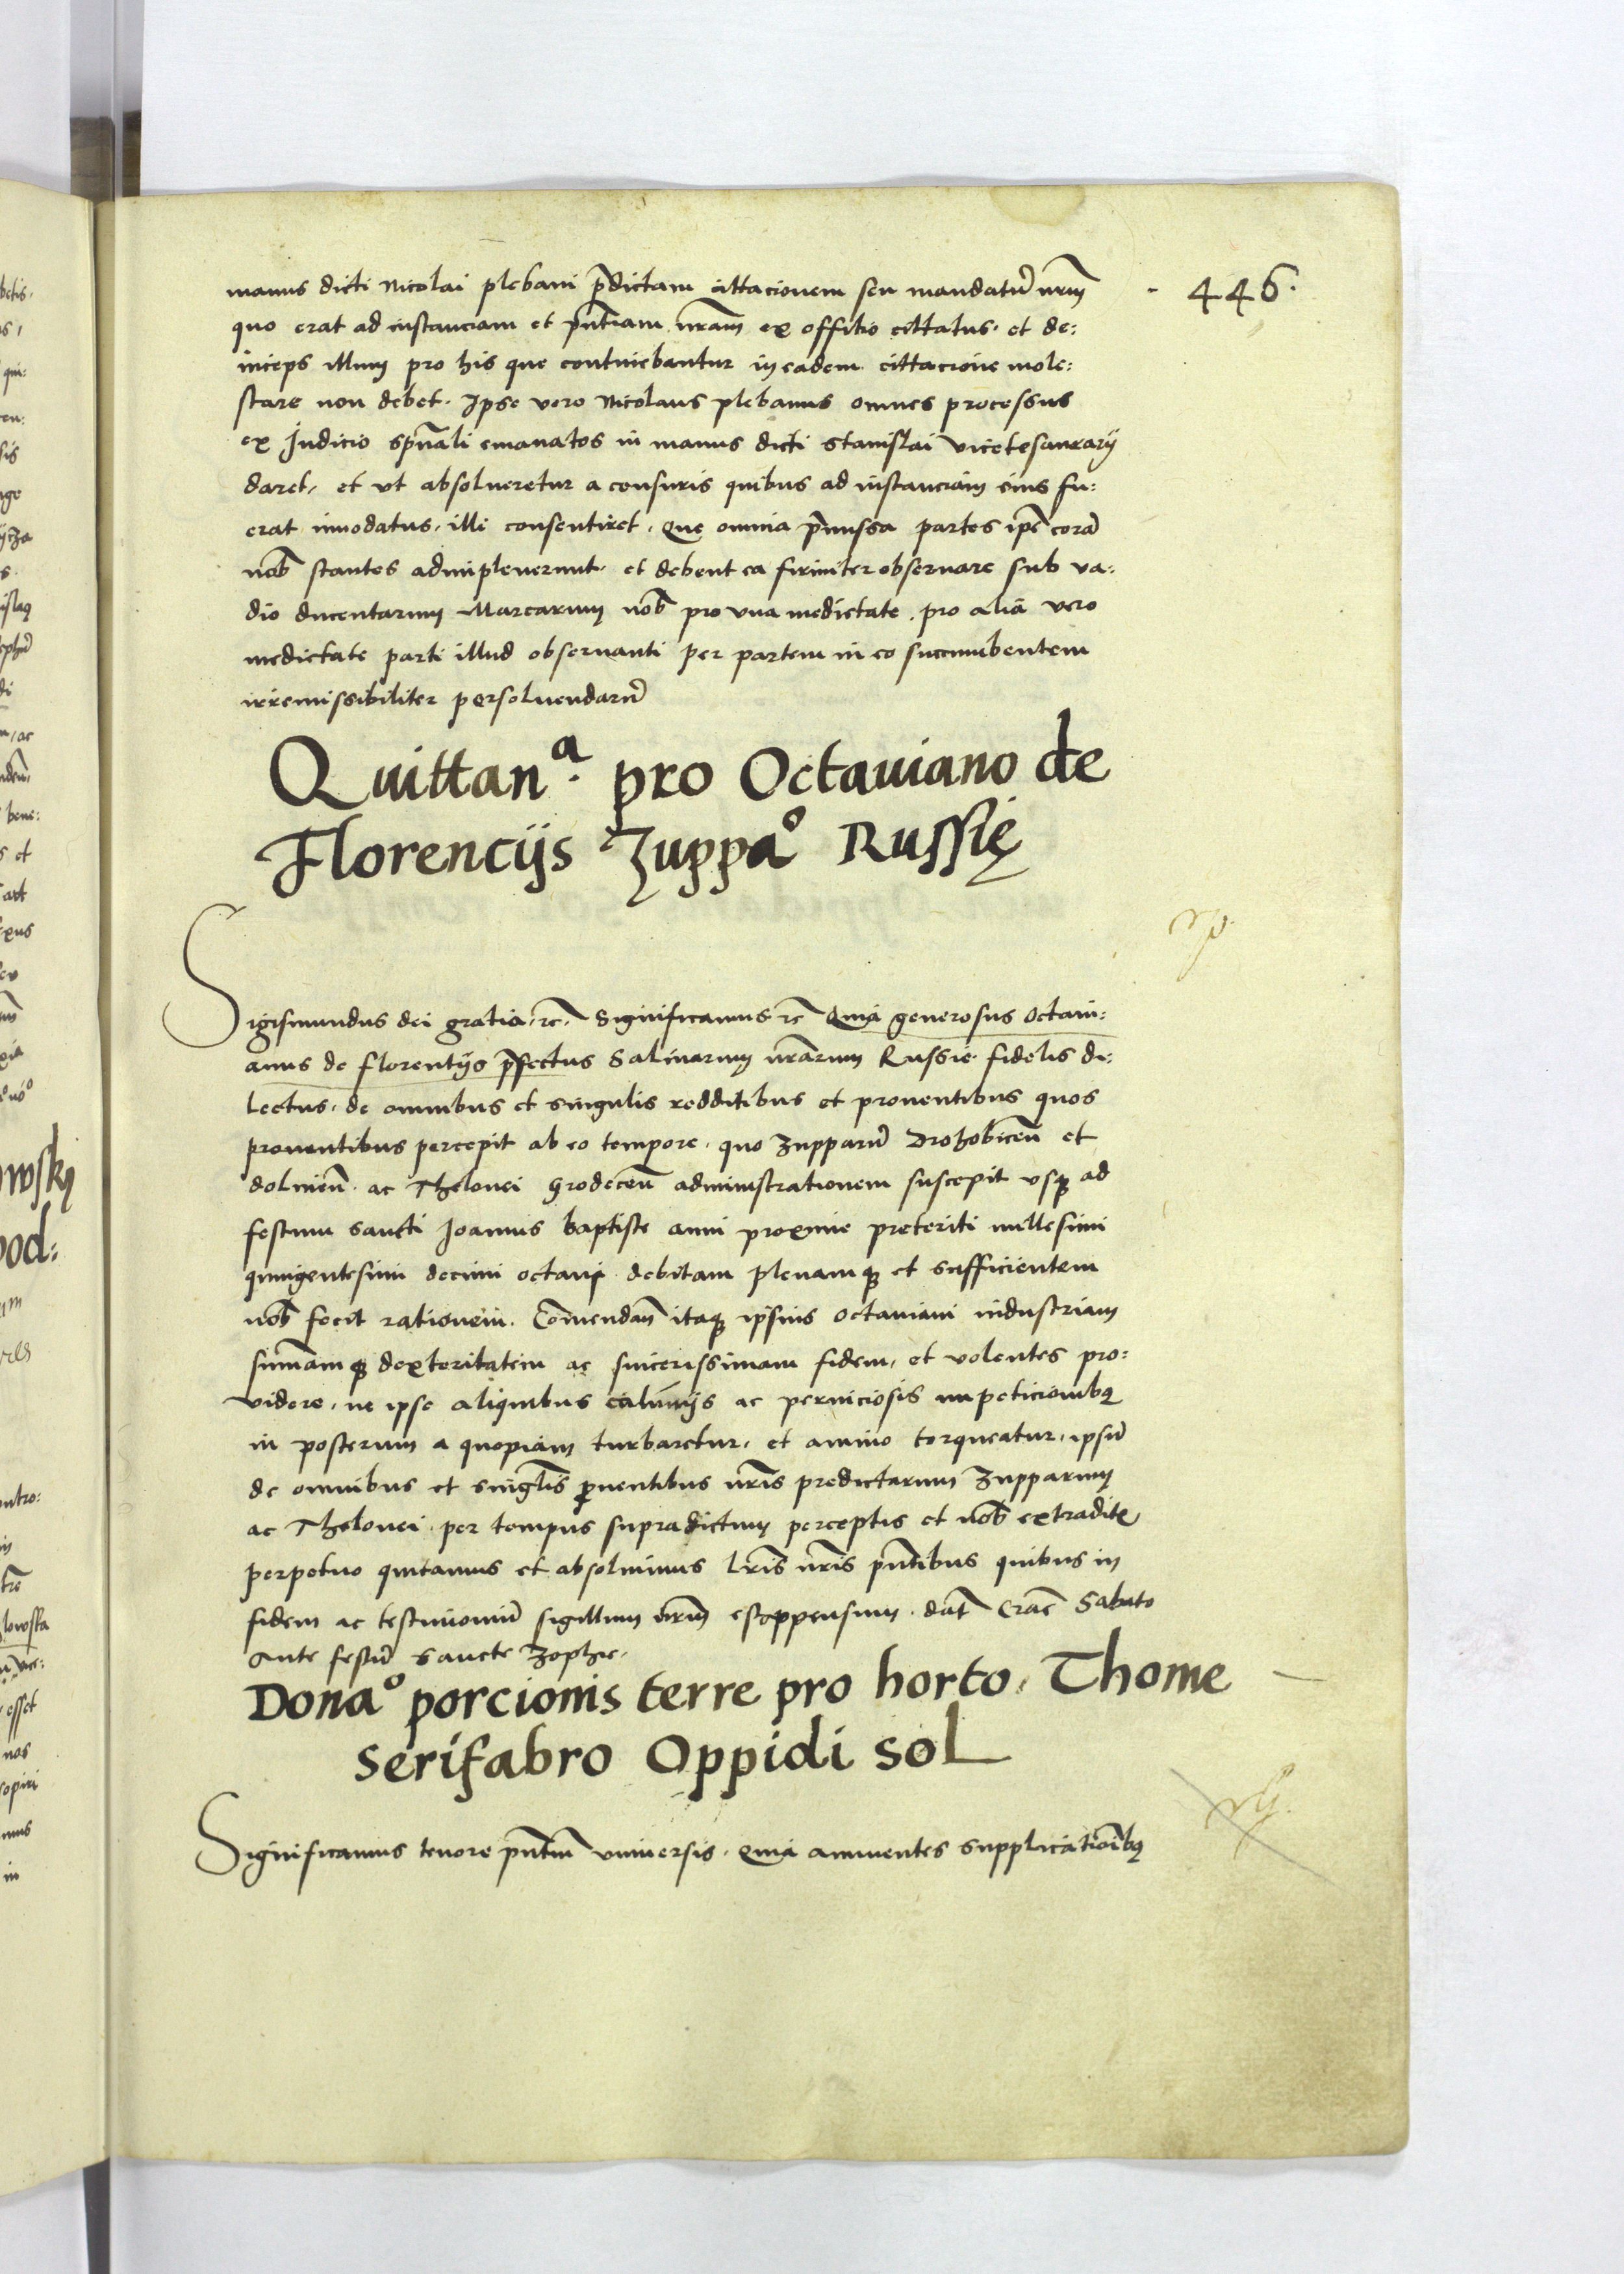 446.
manus dicti Nicolai plebani p̄dictam cittacionem seu mandatū nrm̄
quo erat ad instanciam et pn̄tiam nrām ex offitio cittatus. et de:
inceps illum pro his que continebantur in eadem cittacione mole:
stare non debet. Ipse vero Nicolaus plebanus omnes processus
ex Judicio spūali emanatos in manus dicti Stanislai vicetesaurarij
daret, et vt absolueretur a censuris quibus ad instanciam eius fu:
erat innodatus, illi consentiret. que omnia p̄missa partes ip̄e corā
nob̄ stantes adimpleuerunt. et debent ea firmiter obseruare sub va:
dio ducentarum Marcarum nob̄ pro vna medietate. pro alia vero
medietate parti illud obseruanti per partem in eo succumbentem
irremissibiliter persoluendarū
Quittanᵃ. pro Octauiano de
Florencijs Zuppaᵒ Russię
Sigismundus dei gratia, rc̄. Significamus rc̄ Quia generosus Octaui:
anus de florentijs p̄fectus Salinarum nrārum Russie fidelis di:
lectus, de omnibus et singulis redditibus et prouentibus quos
prouentibus percepit ab eo tempore, quo Zupparū Drohobiceñ et
dolineñ. ac Thelonei Grodeceñ administrationem suscepit vsq ad
festum sancti Joannis baptiste anni proxime preteriti millesimi
quingentesimi decimi octaui debitam plenamq et sufficientem
nob̄ fecit rationem. Com̄endan̄ itaq ipsius Octauiani industriam
sum̄amq dexteritatem ac sincerissimam fidem, et volentes pro:
videre, ne ipse aliquibus calum̄ijs ac perniciosis impeticionibq
in posterum a quopiam turbaretur, et animo torqueatur, ipsū
de omnibus et singlīs prouentibus nrīs predictarum Zupparum
ac Thelonei per tempus supradictum perceptis et nob̄ extraditę
perpetuo quitamus et absoluimus lrīs nrīs pn̄tibus quibus in
fidem ac testimoniū sigillum nrm̄ est appensum. dat̄ Crac̄ Sabato
Ante festū sancte Zophie.
Donaᵒ porcionis terre pro horto, Thome
serifabro Oppidi sol
Significamus tenore pn̄tiū vniuersis. quia annuentes supplicatioībq